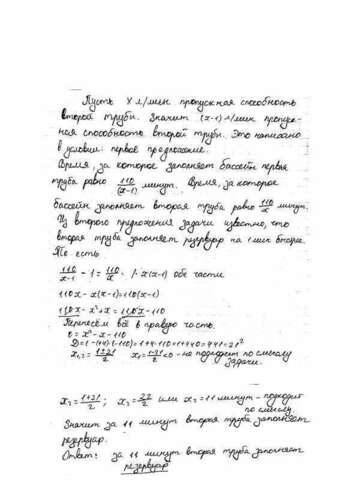 Пусть X л/мин пропускная способность
второй трубы. Значит (x-1) л/мин пропуск-
ная способность второй трубы. Это написано
в условии: первое предложение.
Время, за которое заполняет бассейн первая
труба равно 110/(x-1) минут. Время, за которое
бассейн заполняет вторая труба равно 110/x минут.
Из второго предложения задачи известно, что
вторая труба заполняет резервуар на 1 мин
То есть
110/x-1 - 1 = 110/x - /· x(x-1) обе части
110x - x(x-1) = 110(x-1)
110x - x² + x = 110x - 110
Перенесём всё в правую часть.
0 = x² - x - 110
D = (-1)-4·1·(-110) = 1+4·110 = 1+440 = 441 = 21²
x₁,₂ = 1±21/2 x₁ = 1-21/2 < 0 - не подходит по смыслу
задачи.
x₂ = 1+21/2 ; x₂ = 22/2 или x₂ = 11 минут - подходит
по смыслу.
Значит за 11 минут вторая труба заполняет
резервуар.
Ответ: за 11 минут вторая труба заполняет
резервуар